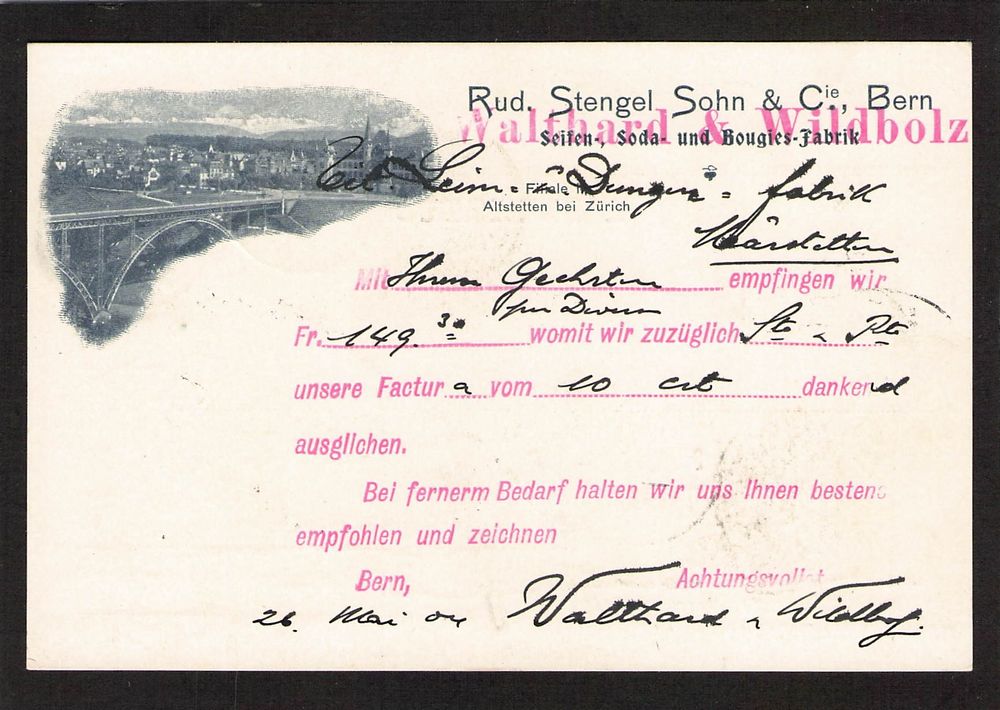 Rud. Stengel Sohn & Cie., Bern
Walthard & Wildbolz
Seifen-, Soda- und Bougies-Fabrik
Leim- & Dünger-fabrik
Filiale in
Altstetten bei Zürich
Märstetten
Mit Ihrem Geehrten empfingen wir
per
Fr. 149.30 womit wir zuzüglich
unsere Factur a vom 10 crt dankend
ausglichen.
Bei fernerm Bedarf halten wir uns Ihnen bestens
empfohlen und zeichnen
Bern, Achtungsvollst
26. Mai Walthard & Wildbolz.